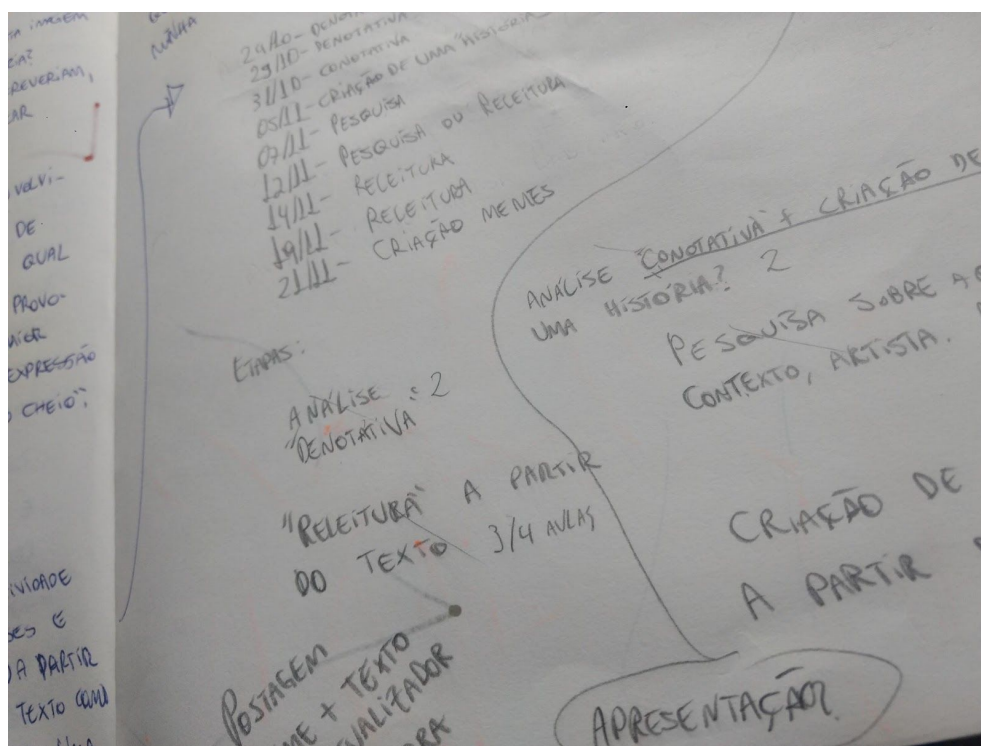 TA IMAGEM
CIA?
REVERIAM,
AR
VOLVI-
DE
QUAL
PROVO-
EXPRESSÃO
CHEIO";
IVIDADE
SES E
A PARTIR
TEXTO COMO
MINHA
24/10 - DENO
29/10 - DENOTATIVA
31/10 - CONOTATIVA
05/11 - CRIAÇÃO DE UMA "HISTÓRIA
07/11 - PESQUISA
12/11 - PESQUISA OU RELEITURA
14/11 - RELEITURA
19/11 - RELEITURA
21/11 - CRIAÇÃO MEMES
ETAPAS:
ANÁLISE : 2
"DENOTATIVA
"RELEITURA" A PARTIR
DO TEXTO 3/4 AULAS
POSTAGEM
ME + TEXTO
UALIZADOR
ORA
ANÁLISE "CONOTATIVA" + CRIAÇÃO DE
UMA HISTÓRIA? 2
PESQUISA SOBRE A
CONTEXTO, ARTISTA.
CRIAÇÃO DE
A PARTIR
APRESENTAÇÃO?